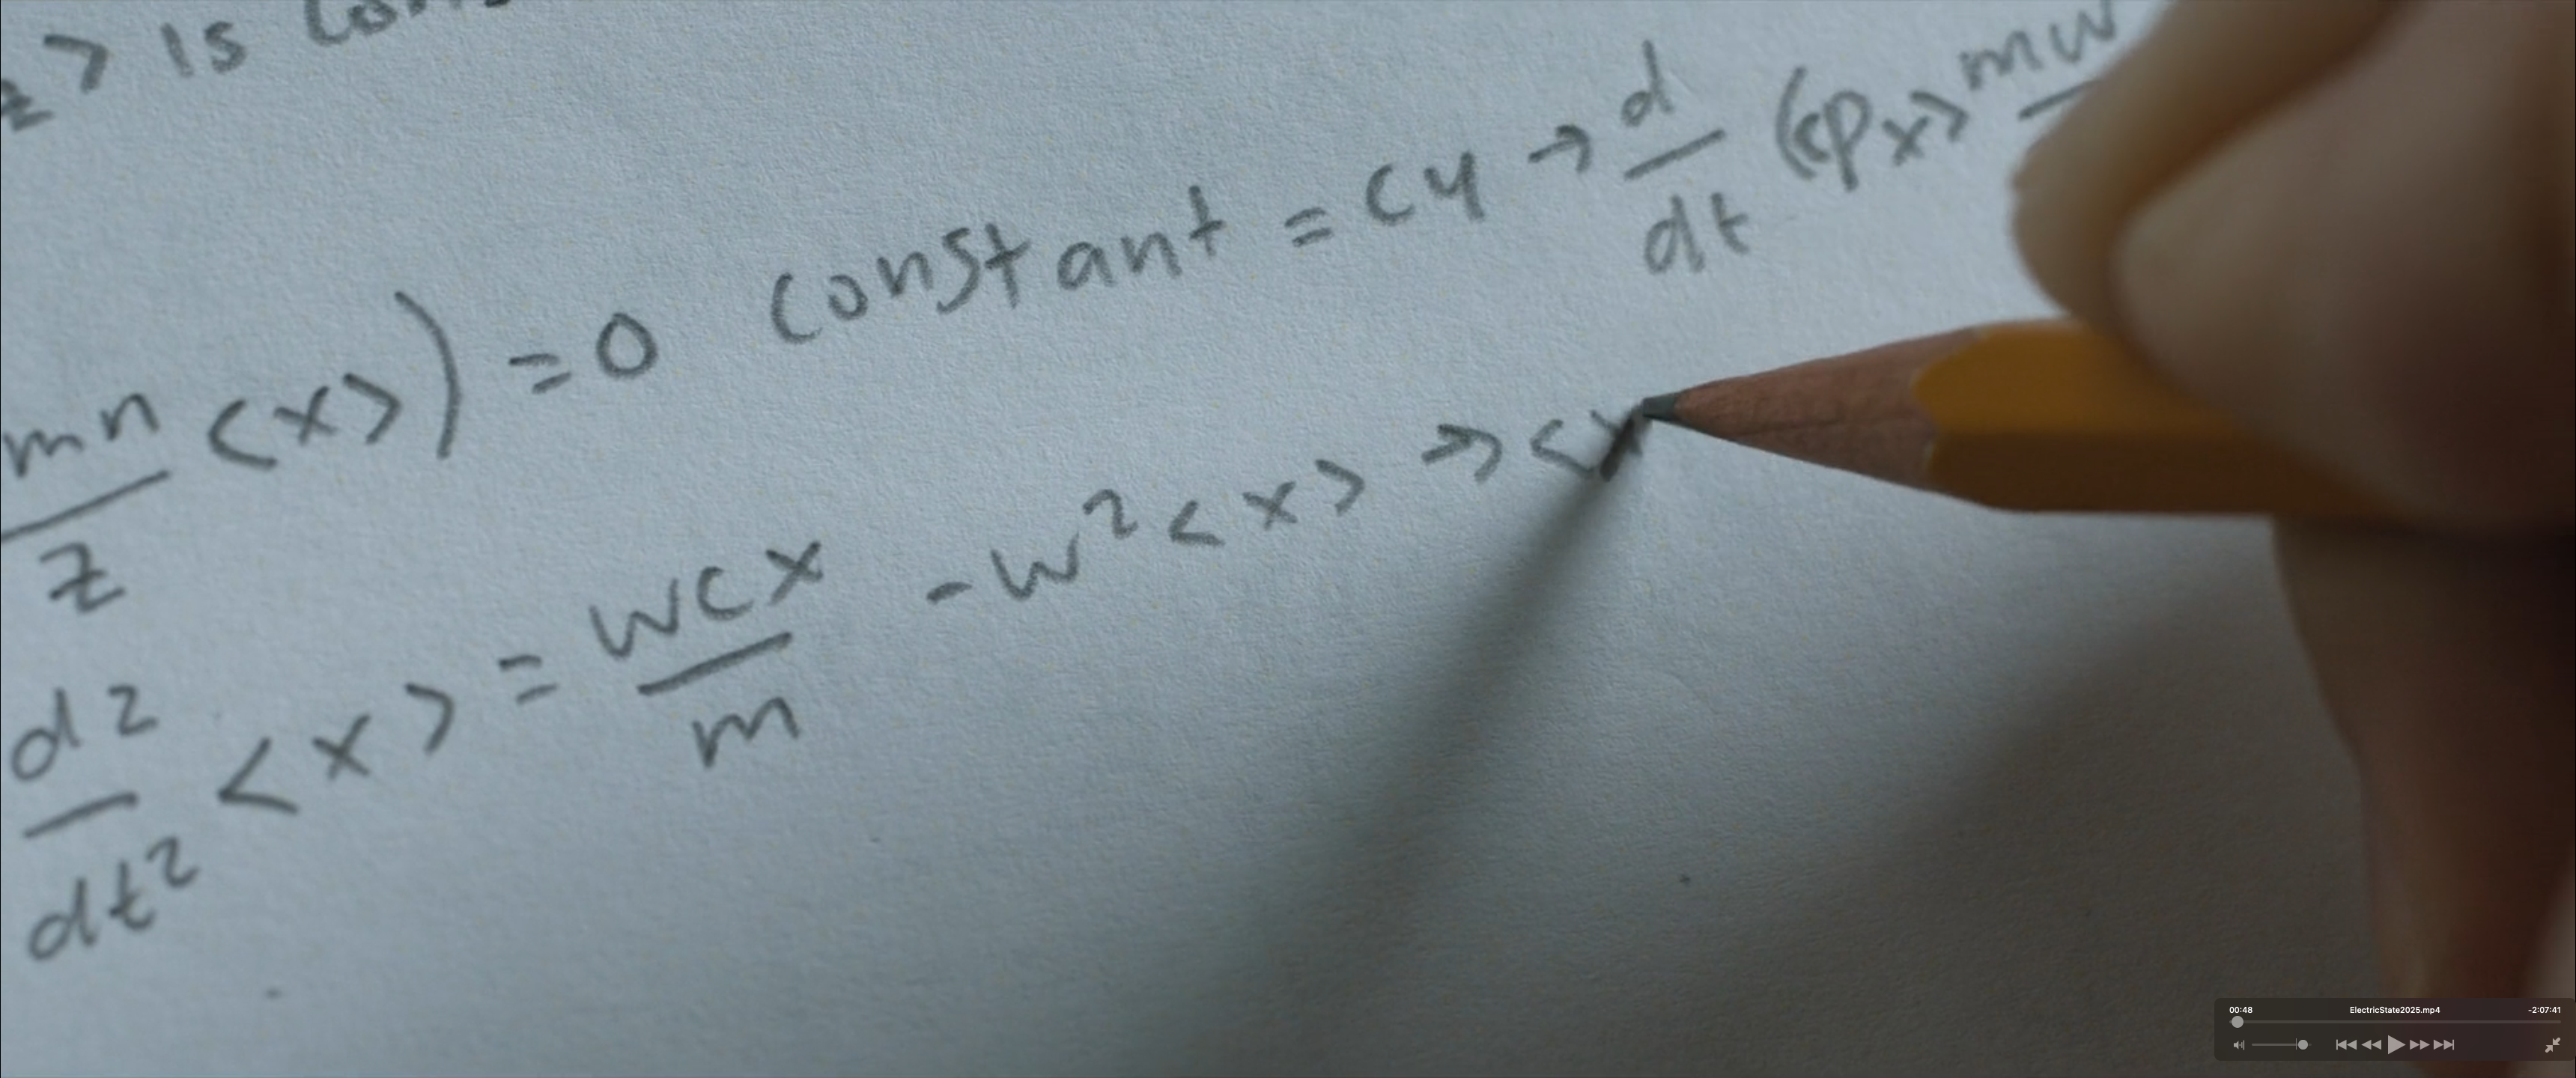 z > is
mn/z <x>) = 0 constant = cy → d/dt (<px> mw
d2/dt2 <x> = wcx/m - w2 <x> → <x
00:48 ElectricState2025.mp4 -2:07:41